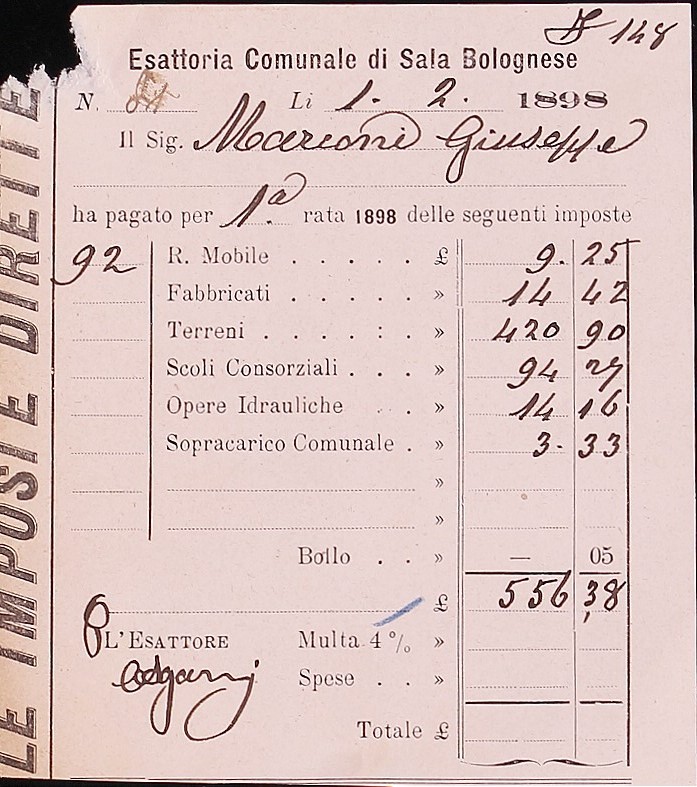 148
Esattoria Comunale di Sala Bolognese
N. Li 1. 2. 1898
Il Sig. Marconi Giuseppe
ha pagato per 1ª rata 1898 delle seguenti imposte
92 R. Mobile . . . . . £ 9. 25
Fabbricati . . . . . » 14 42
Terreni . . . . : . » 420 90
Scoli Consorziali . . . » 94 27
Opere Idrauliche . . » 14 16
Sopracarico Comunale . » 3. 33
»
»
Bollo . . » — 05
£ 556,38
L'ESATTORE Multa 4 % »
Spese . . »
Totale £
LE IMPOSTE DIRETTE